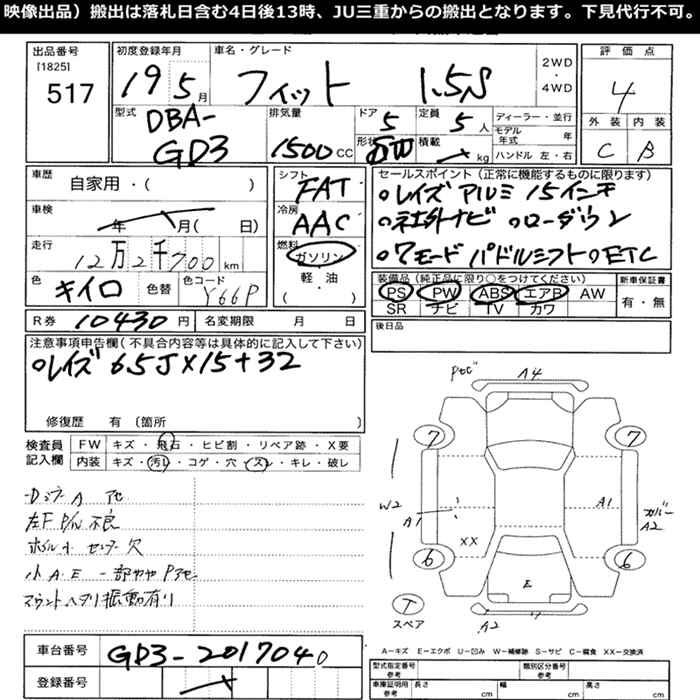 映像出品）搬出は落札日含む4日後13時、JU三重からの搬出となります。下見代行不可。
出品番号
[1825]
517
初度登録年月
19 5月
車名・グレード
フィット 1.5S
2WD
・
4WD
評価点
4
外装 内装
C B
型式
DBA-
GD3
排気量
1500cc
ドア
5
形状
SW
定員
5人
積載
kg
ディーラー・並行
モデル年式 年
ハンドル 左・右
車歴
自家用・( )
車検
年 月( 日)
走行
12万2千700km
色
キイロ
色替
色コード
Y66P
シフト
FAT
冷房
AAC
燃料
ガソリン
・
軽・油
( )
セールスポイント（正常に機能するものに限ります）
○レイズ アルミ 15インチ
○社外ナビ ○ローダウン
○7モード パドルシフト○ETC
装備品（純正品に限り○をつけてください）
PS PW ABS エアB AW
SR ナビ TV カワ
新車保証書
有・無
R券 10430円
名変期限 月 日
後日品
注意事項申告欄（不具合内容等は具体的に記入して下さい）
○レイズ 6.5J×15+32
修復歴 有（箇所
検査員
記入欄
FW キズ・飛石・ヒビ割・リペア跡・X要
内装 キズ・汚レ・コゲ・穴・スレ・キレ・破レ
左F P/W 不良
小A.E 一部
マウントヘタリ振動有り
A4
7 7
W2
A1
A1
A2
XX
6 6
E
T
スペア
A2
A－キズ E－エクボ U－凹み W－補修跡 S－サビ C－腐食 XX－交換済
車台番号
GD3-2017040
登録番号
型式指定番号
参考
類別区分番号
参考
車庫証明用
参考
長さ cm
幅 cm
高さ cm